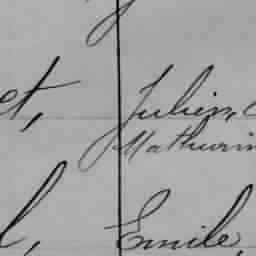 et, Julien,
Mathurin
l, Emile,